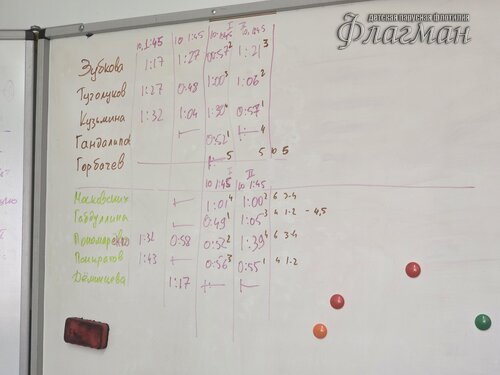 детская парусная флотилия
Флагман
I II
10 1:45 10 1:45 10 1:45 10 1:45
Зубкова 1:17 1:27 0:57² 1:21³
Туголуков 1:27 0:48 1:00³ 1:06²
Кузьмина 1:32 1:04 1:30⁴ 0:57¹
Гандалипов 0:52¹ 4
Горбачев 5 5 10 5
I II
10 1:45 10 1:45
Московских 1:01⁴ 1:00² 6 3-4
Габдуллина 0:49¹ 1:05³ 4 1-2 - 4,5
Пономаренко 1:31 0:58 0:52² 1:39⁴ 6 3-4
Панкратов 1:43 0:56³ 0:55¹ 4 1-2
Дёминцева 1:17